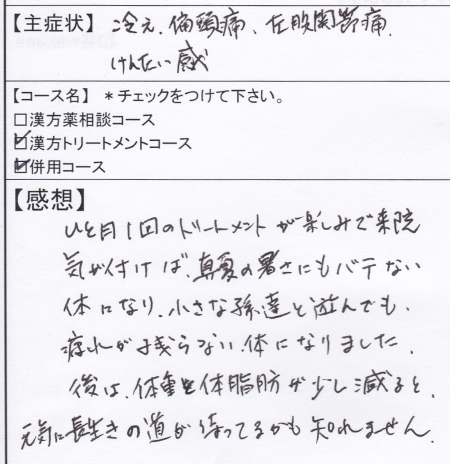 【主症状】 冷え、偏頭痛、左股関節痛、
けんたい感
【コース名】 *チェックをつけて下さい。
□漢方薬相談コース
☑漢方トリートメントコース
☑併用コース
【感想】
ひと月1回のトリートメントが楽しみで来院
気が付けば、真夏の暑さにもバテない
体になり、小さな孫達と遊んでも、
疲れが残らない体になりました。
後は、体重と体脂肪が少し減ると、
元気に長生きの道が待ってるかも知れません。